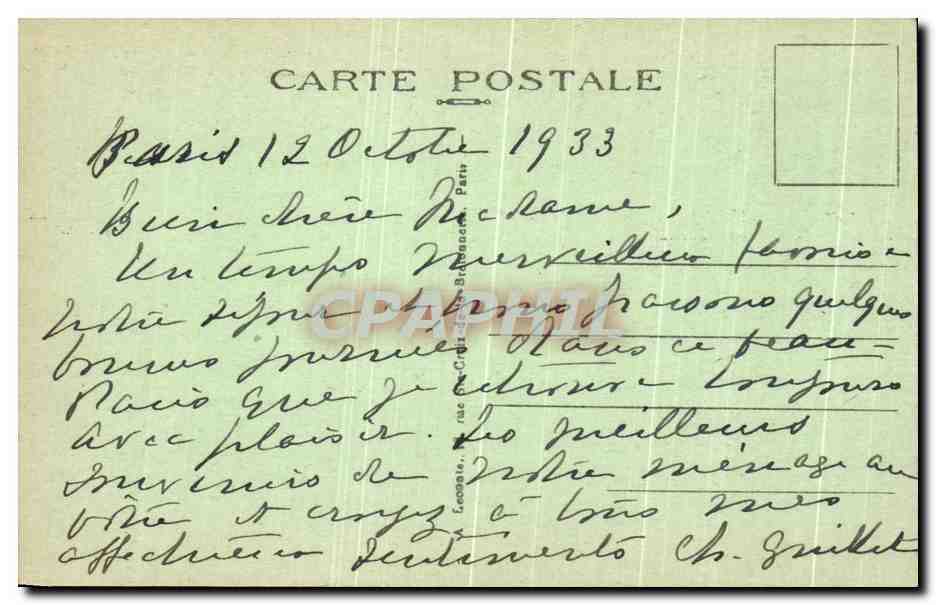 CARTE POSTALE
Paris 12 Octobre 1933
Bien chère Madame,
Un temps merveilleux favorise
notre séjour et nous passons quelques
bonnes journées dans ce beau
Paris que je retrouve toujours
avec plaisir. Les meilleurs
souvenirs de notre ménage au
vôtre et croyez à tous mes
affectueux sentiments Ch. Guillet
A. Leconte, rue Ste-Croix-de-la-Bretonnerie, Paris
CPAPHIL